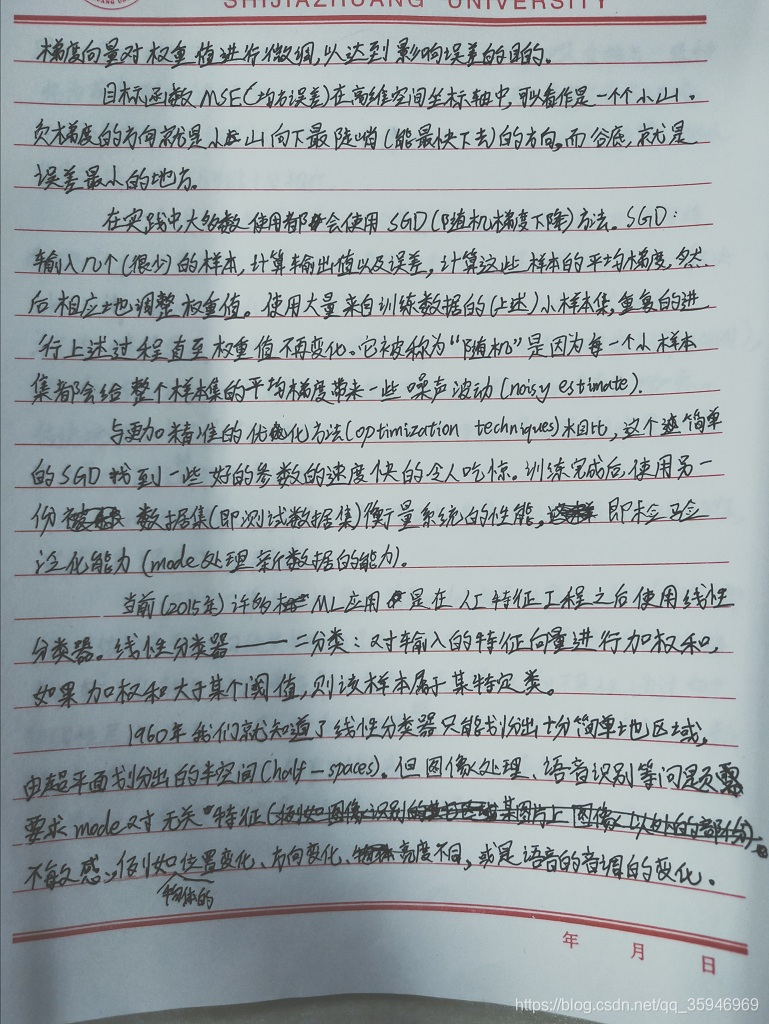 SHIJIAZHUANG UNIVERSITY
梯度向量对权重值进行微调,以达到影响误差的目的。
目标函数 MSE(均方误差)在高维空间坐标轴中,可以看作是一个个小山。
负梯度的方向就是小山向下最陡峭(能最快下去)的方向,而谷底,就是
误差最小的地方。
在实践中大多数使用都会使用 SGD(随机梯度下降)方法。SGD:
输入几个(很少)的样本,计算输出值以及误差,计算这些样本的平均梯度,然
后相应地调整权重值。使用大量来自训练数据的(上述)小样本集,重复的进
行上述过程直至权重值不再变化。它被称为“随机”是因为每一个小样本
集都会给整个样本集的平均梯度带来一些噪声波动(noisy estimate).
与更加精准的优化方法(optimization techniques)相比,这个简单
的SGD找到一些好的参数的速度快的令人吃惊。训练完成后,使用另一
份数据集(即测试数据集)衡量系统的性能,即检验
泛化能力(mode处理新数据的能力).
当前(2015年)许多ML应用是在人工特征工程之后使用线性
分类器。线性分类器——二分类:对输入的特征向量进行加权和,
如果加权和大于某个阈值,则该样本属于某特定类。
1960年我们就知道了线性分类器只能划分出十分简单地区域,
由超平面划分出的半空间(half-spaces). 但图像处理、语音识别等问题
要求mode对无关特征(例如图像识别的某图片上图像以外的部分)
不敏感,例如物体的位置变化、方向变化、亮度不同,或是语音的音调的变化。
年 月 日
https://blog.csdn.net/qq_35946969